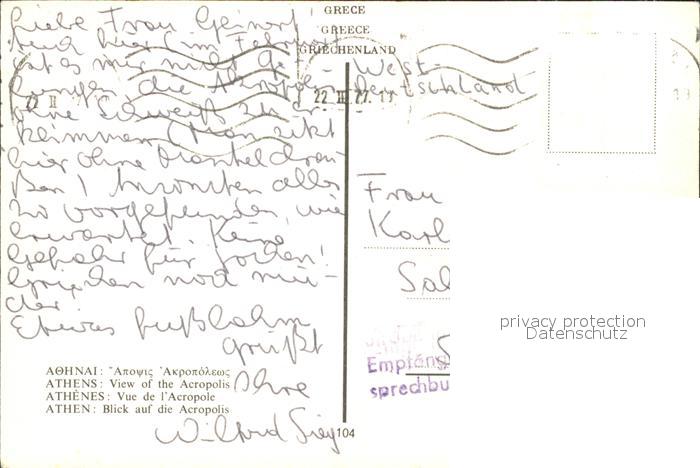 GRECE
GREECE
GRIECHENLAND
Liebe Frau
auch hier (im Februar
ist es mir nicht ge-
lungen die Akropolis
ohne Schweiß zu er-
klimmen (Man sitzt
hier ohne Mantel drau-
ßen) Ansonsten alles
so vorgefunden, wie
erwartet. Keine
Gefahr für
Griechen
Etwas fußlahm
grüßt
Ihre
Wilfried
22 II 77
West-
Deutschland
Frau
Karl
Sal
Empfäng
sprechbu
privacy protection
Datenschutz
ΑΘΗΝΑΙ: Ἄποψις Ἀκροπόλεως
ATHENS: View of the Acropolis
ATHÈNES: Vue de l'Acropole
ATHEN: Blick auf die Acropolis
104